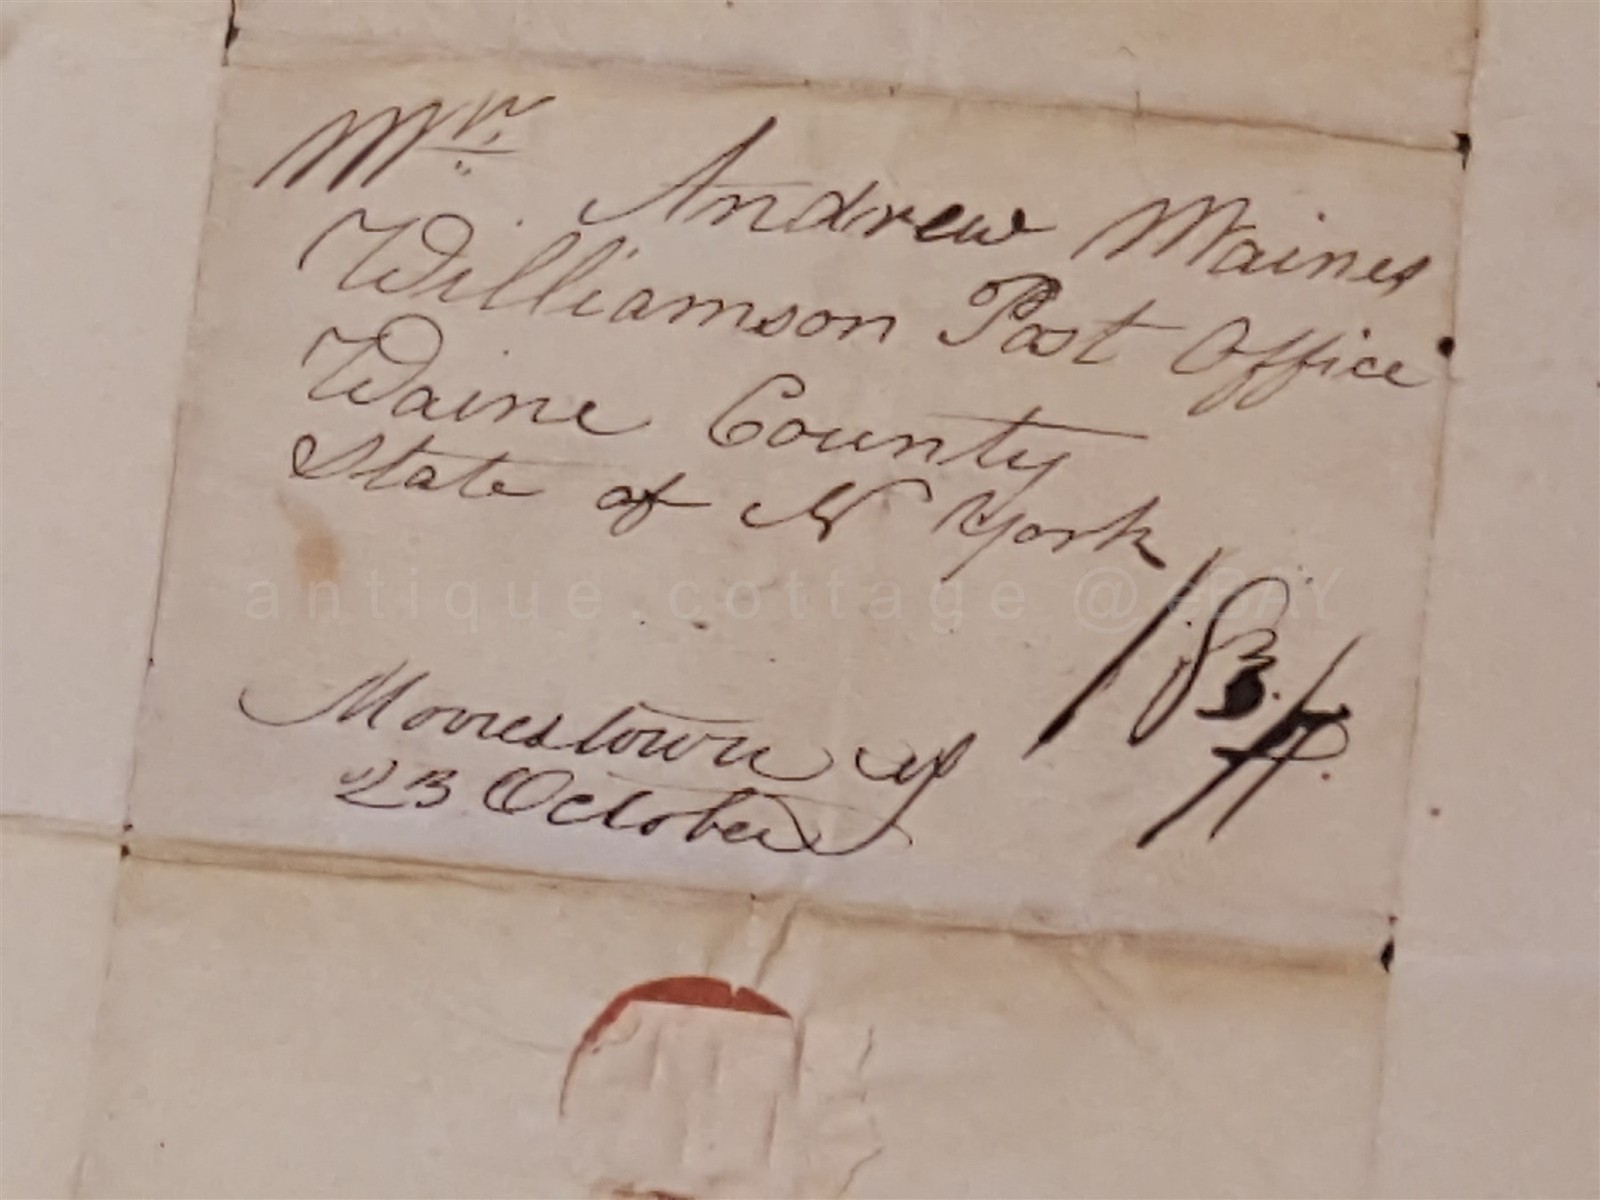 Mr. Andrew Maines
Williamson Post Office
Waine County
State of N York
antique.cottage @ eBAY
18 3/4
Morrestown
23 October